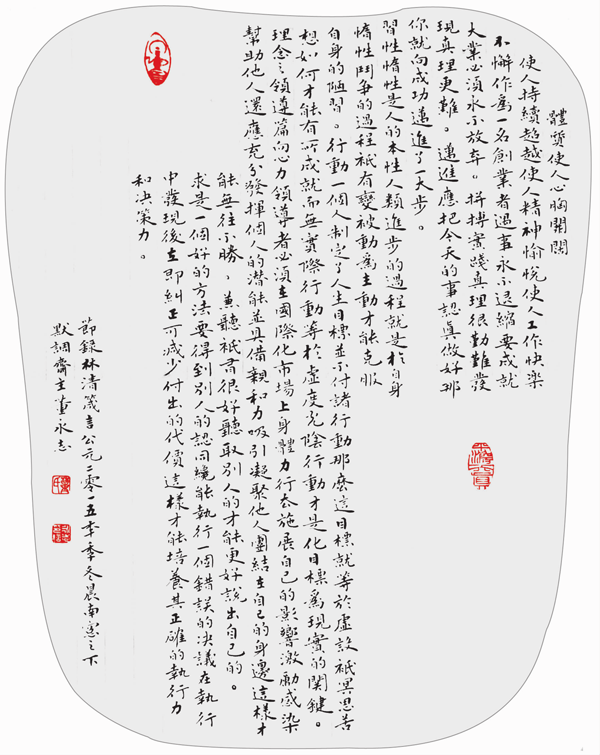 體質使人心胸開闊
使人持續超越使人精神愉悅使人工作快樂
不懈作爲一名創業者遇事永不退縮要成就
大業必須永不放弃。拼搏實踐真理很勤難發
現真理更難。遞進應把今天的事認真做好那
你就向成功遞進了一大步。
習性惰性是人的本性人類進步的過程就是於自身
惰性鬥爭的過程衹有變被動爲主動才能克服
自身的陋習。行動一個人制定了人生目標並不付諸行動那麼這目標就等於虛設衹思苦
想如何才能有所成就而無實際行動等於虛度光陰行動才是化目標爲現實的関鍵。
理念之領導篇向心力領導者必須在國際化市場上身體力行去施展自己的影響激勵感染
幫助他人還應充分發揮個人的潛能並具備親和力吸引凝聚他人團結在自己的身邊這樣才
能無往不勝。兼聽衹有很好聽取別人的才能更好說出自己的。
求是一個好的方法要得到別人的認同纔能執行一個錯誤的决議在執行
中發現後立即糾正可減少付出的代價這樣才能培養其正確的執行力
和决策力。
節錄林清箴言公元二零一五年季冬晨南窗之下
默調齋主董永志